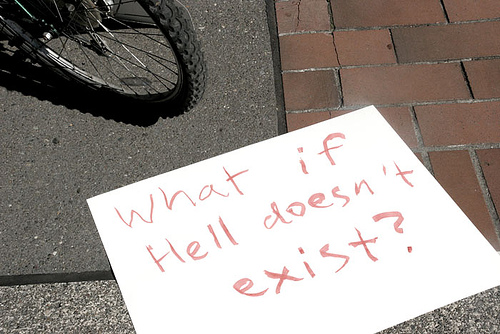 What if
Hell doesn't
exist?